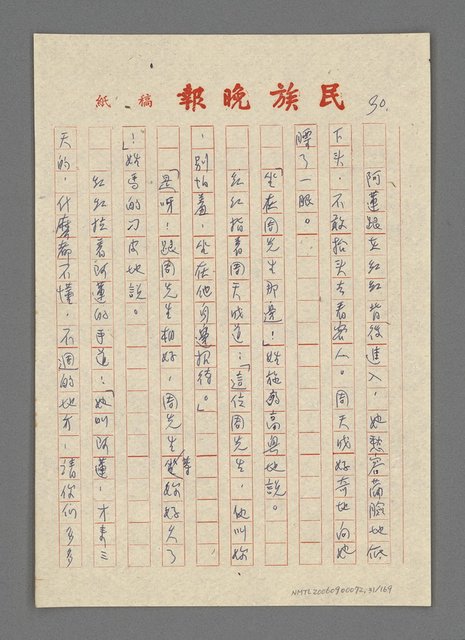 30.
民族晚報 稿紙
阿蓮跟在紅紅背後進入,她愁容滿臉地低
下頭,不敢抬頭去看客人。周天成好奇地向她
瞟了一眼。
「坐在周先生那邊!」姓施的高興地說。
紅紅指着周天成道:「這位周先生,他叫你
,別怕羞,坐在他身邊招待。」
「是呀!跟周先生相好,周先生等妳好久了
!」姓馮的刁皮地說。
紅紅拉着阿蓮的手道:「她叫阿蓮,才來三
天的,什麼都不懂,不週的地方,請你們多多
NMTL20060900092,31/169